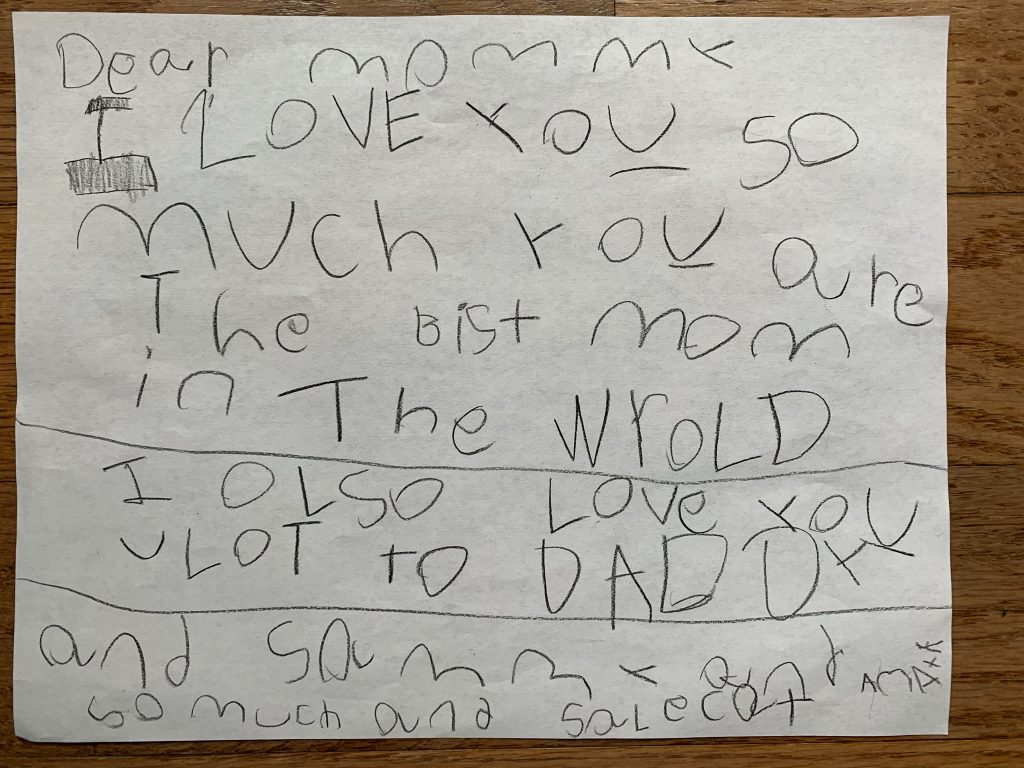 Dear mommy
I LOVE YOU SO
much YOU are
The Bist mom
in The WroLD
I OLSO LOVe YOU
uLOT to DADDYY
and Sammy and
so much and Salecat